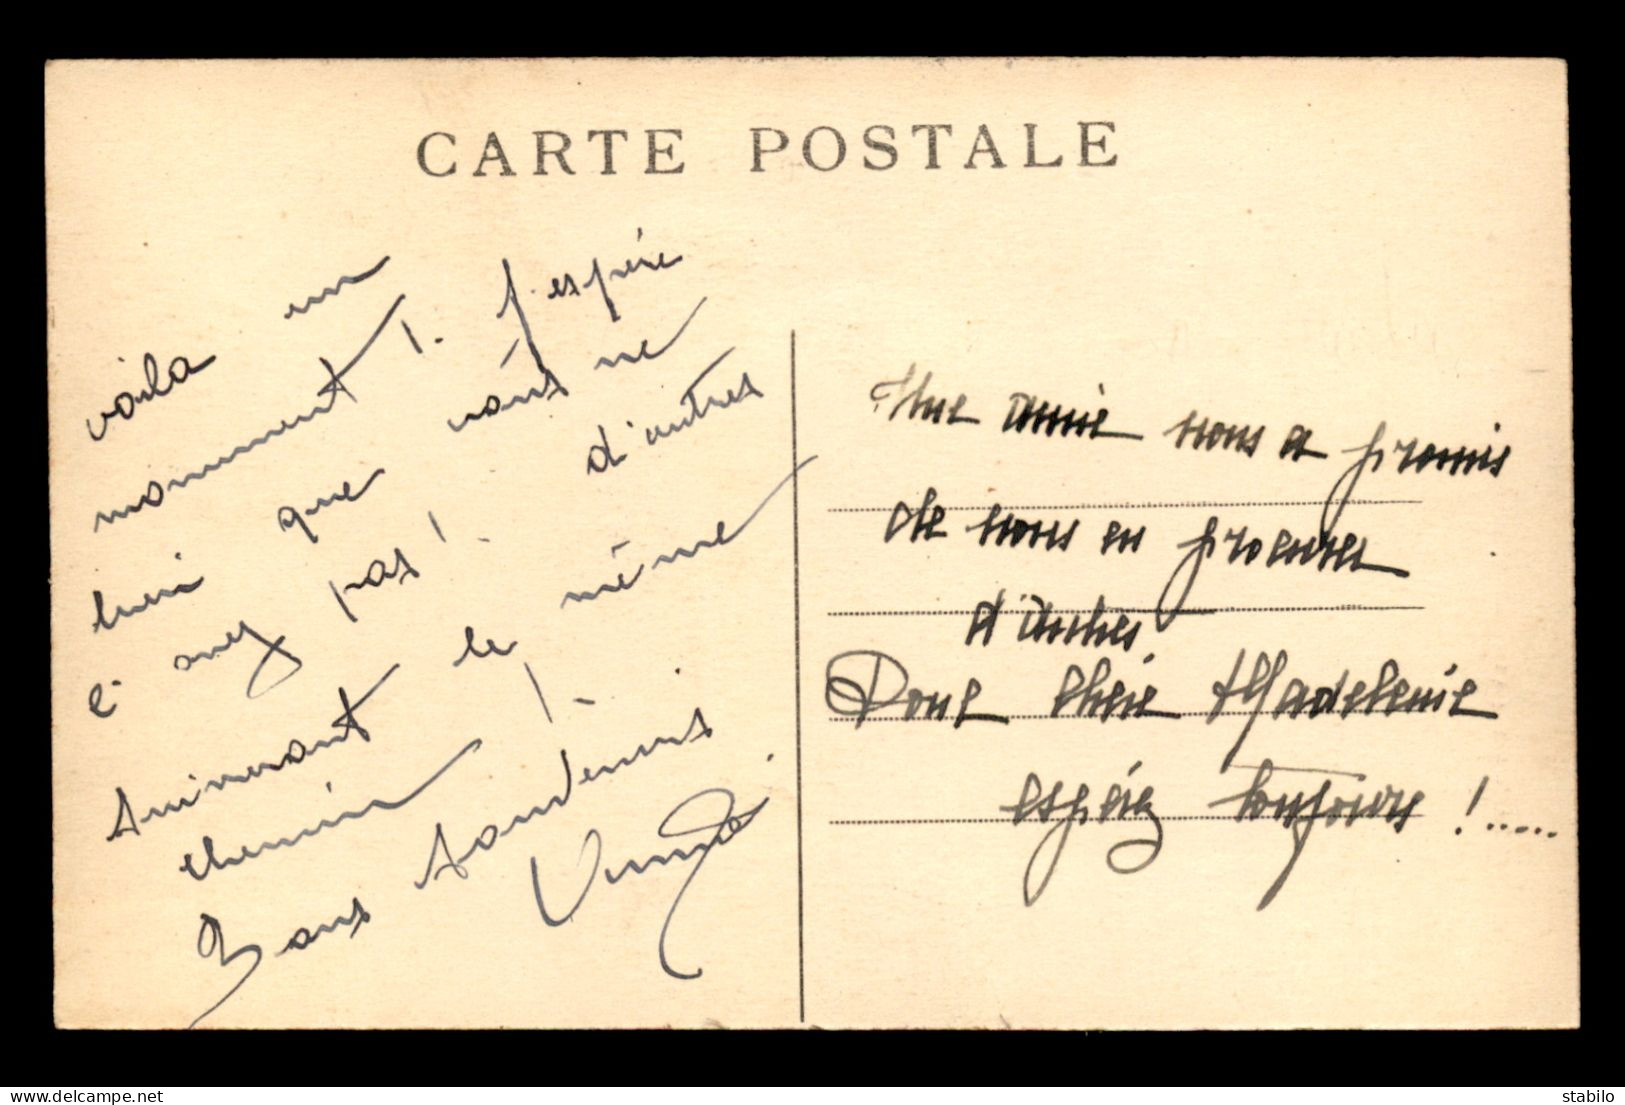 CARTE POSTALE
voila un
monument ! - J'espère
bien que vous ne
l'avez pas ! - d'autres
suivront le même
chemin ! -
Bons souvenirs
Une amie nous a promis
de nous en procurer
d'autres.
Donc chère Madeleine
espérez toujours !.....
delcampe.net
stabilo